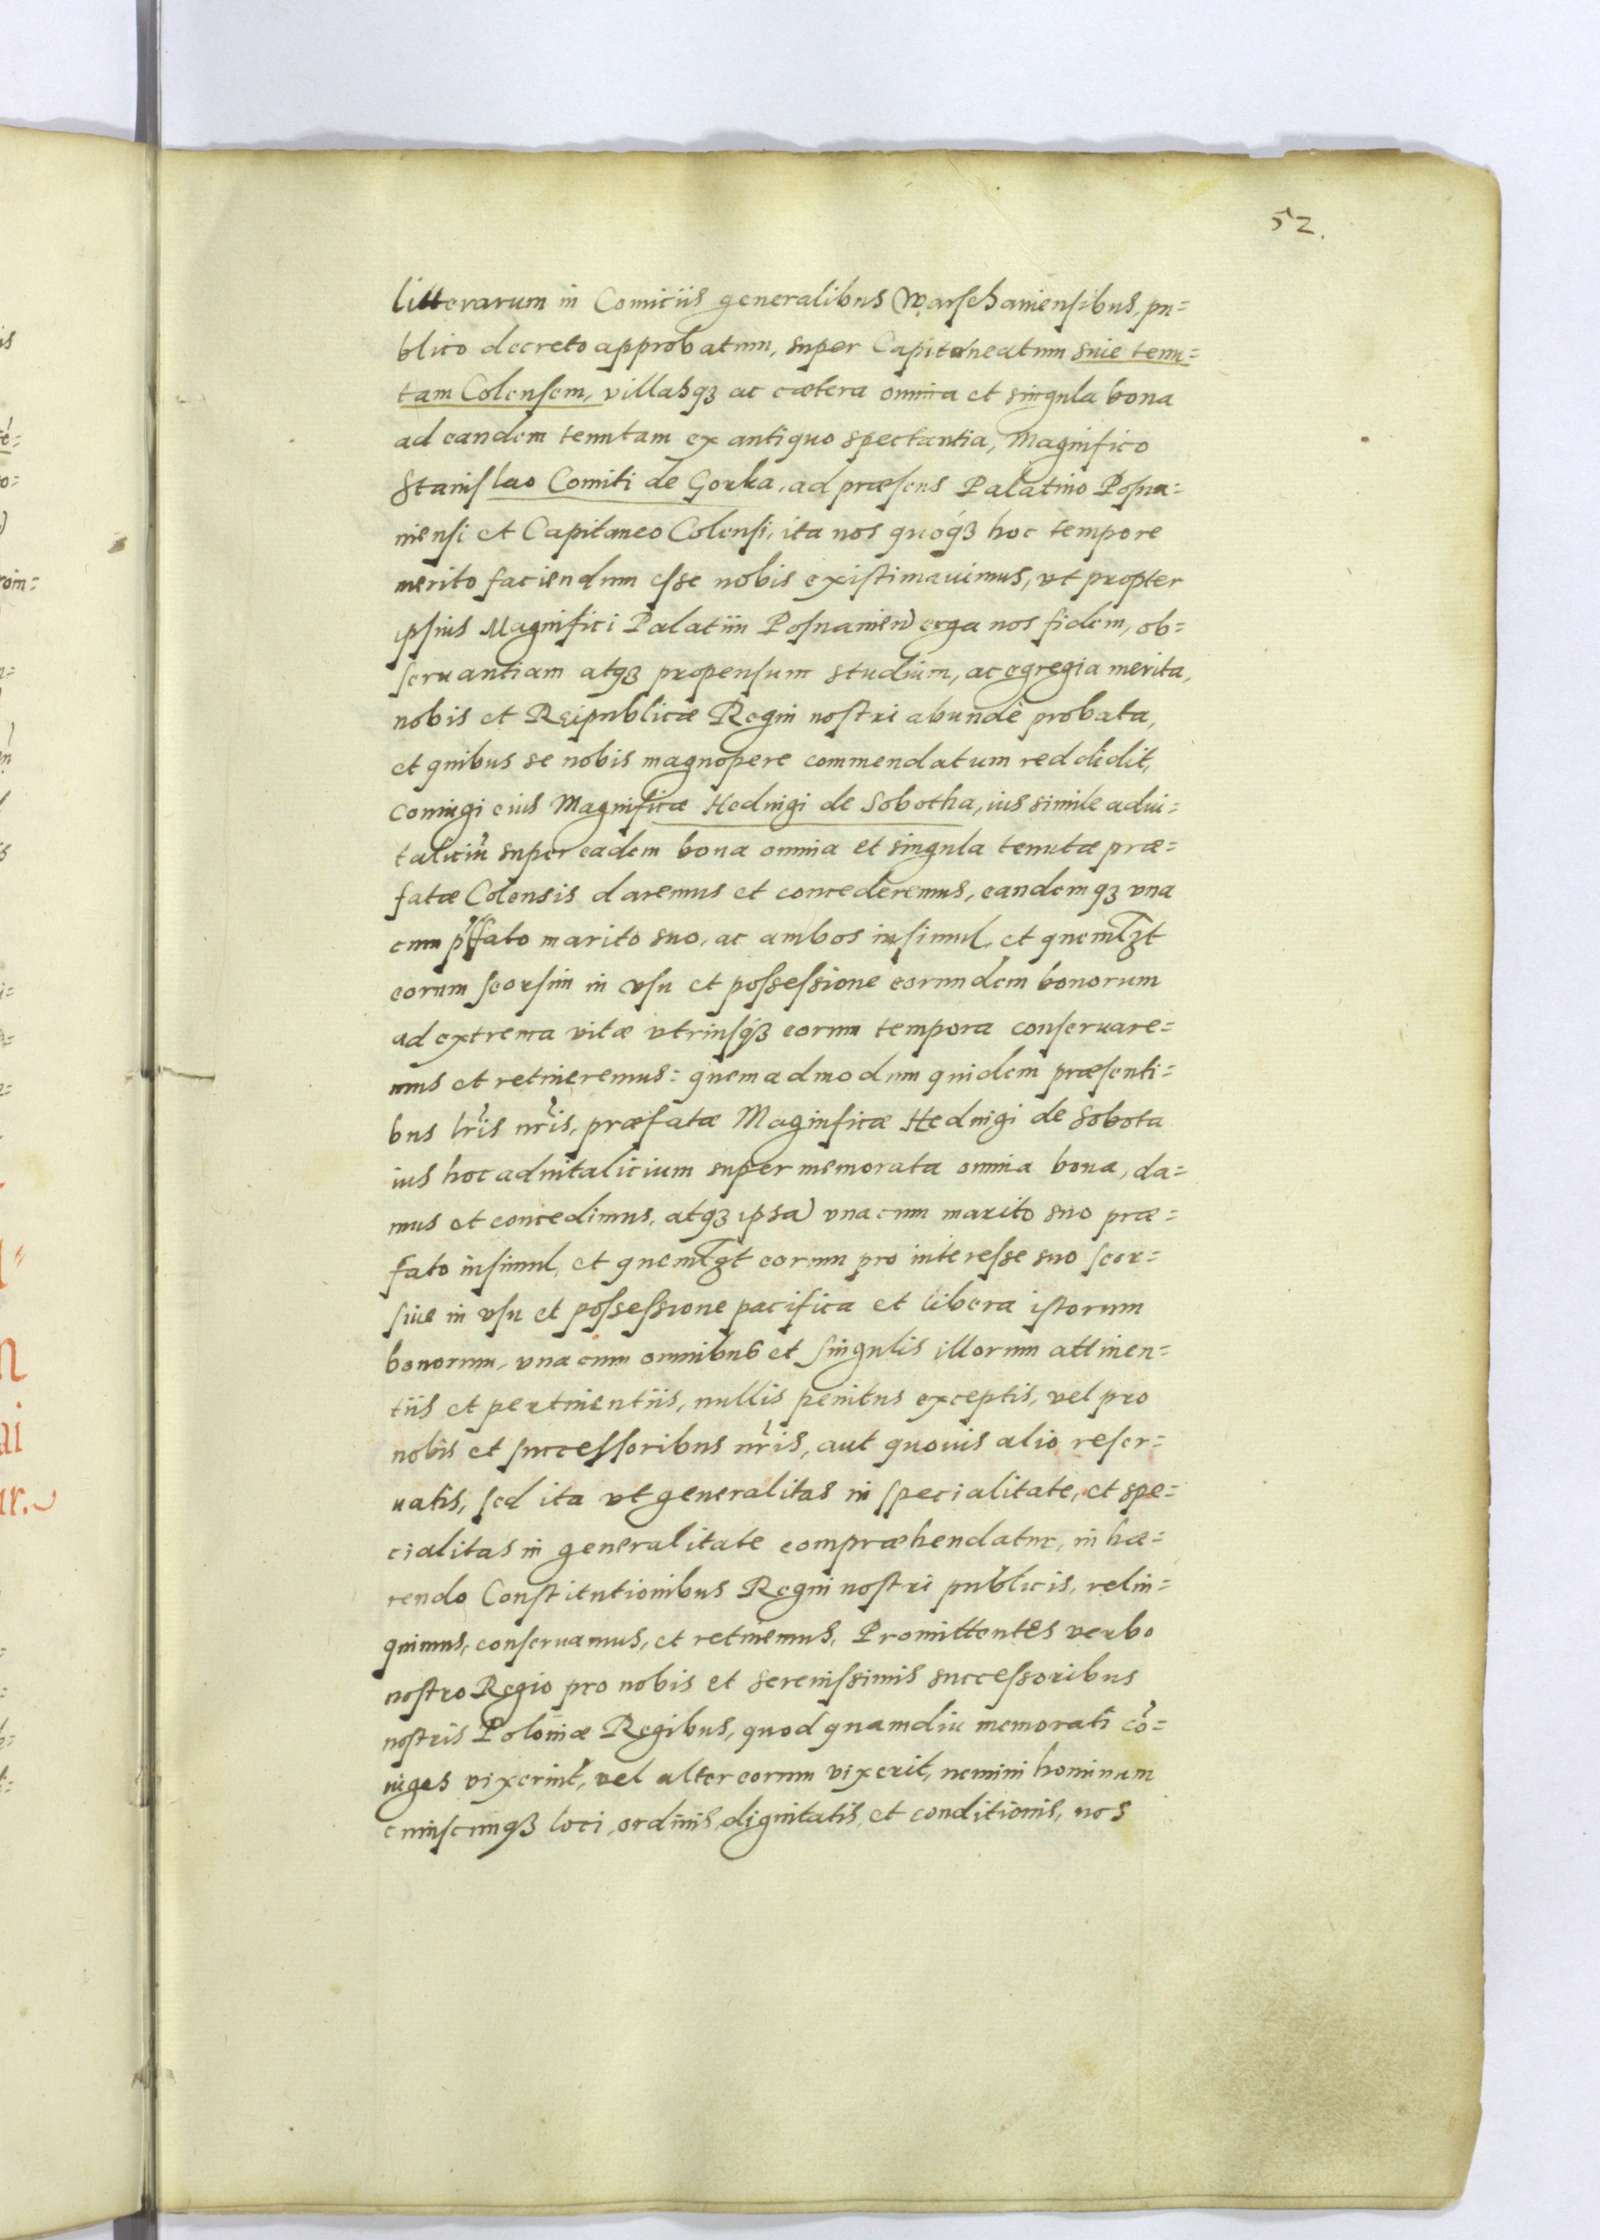 52.
litterarum in Comiciis generalibus Warschaniensibus, pu=
blico decreto approbatum, super Capitaneatum siue tenu=
tam Colensem, villasqꝫ ac cætera omnia et singula bona
ad eandem tenutam ex antiquo spectantia, Magnifico
Stanislao Comiti de Gorka, ad præsens Palatino Posna=
niensi et Capitaneo Colensi, ita nos quoqꝫ hoc tempore
merito faciendum esse nobis existimauimus, vt propter
ipsius Magnifici Palatini Posnanien erga nos fidem, ob=
seruantiam atqꝫ propensum studium, ac egregia merita,
nobis et Reipublicæ Regni nostri abundè probata,
et quibus se nobis magnopere commendatum reddidit,
coniugi eius Magnificæ Heduigi de Sobotha, ius simile adui=
taliciũ super eadem bona omnia et singula tenutæ præ=
fatæ Colensis daremus et concederemus, eandemqꝫ vna
cum p̃fato marito suo, ac ambos insimul, et quemlꝫt
eorum seorsim in vsu et possessione eorundem bonorum
ad extrema vitæ vtriusqꝫ eorum tempora conseruare=
mus et retineremus: quemadmodum quidem præsenti=
bus lr̃is nr̃is, præfatæ Magnificæ Heduigi de Sobota
ius hoc aduitalicium super memorata omnia bona, da=
mus et concedimus, atqꝫ ipsa vna cum marito suo præ=
fato insimul, et quemlꝫt eorum pro interesse suo seor=
siue in vsu et possessione pacifica et libera istorum
bonorum, vna cum omnibus et singulis illorum attinen=
tiis et pertinentiis, nullis penitus exceptis, vel pro
nobis et successoribus nr̃is, aut quouis alio reser=
uatis, sed ita vt generalitas in specialitate, et spe=
cialitas in generalitate compræhendatur, in hæ=
rendo Constitutionibus Regni nostri publicis, relin=
quimus, conseruamus, et retinemus, Promittentes verbo
nostro Regio pro nobis et Serenissimis successoribus
nostris Poloniæ Regibus, quod quamdiu memorati cõ=
iuges vixerint, vel alter eorum vixerit, nemini hominum
cuiuscunqꝫ loci, ordinis, dignitatis, et conditionis, nos